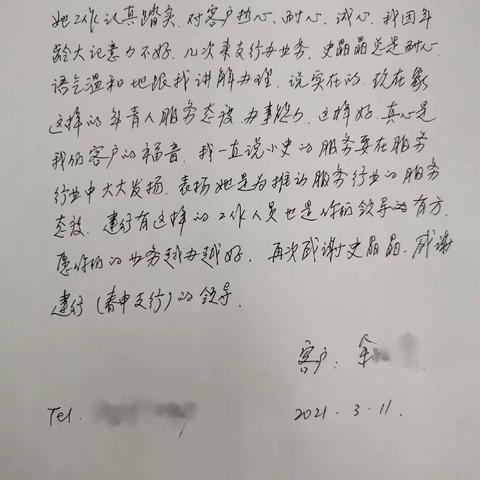 她工作认真踏实，对客户热心、耐心、诚心，我因年
龄大记意力不好，几次来支行办业务，史晶晶总是耐心，
语气温和地跟我讲解办理，说实在的，现在象
这样的年青人服务态度，办事能力，这样好，真心是
我们客户的福音，我一直说小史的服务要在服务
行业中大大发扬，表扬她是为推动服务行业的服务
态度，建行有这样的工作人员也是你们领导的有方，
愿你们的业务越办越好，再次感谢史晶晶，感谢
建行（春申支行）的领导。
客户：
Tel.
2021.3.11.